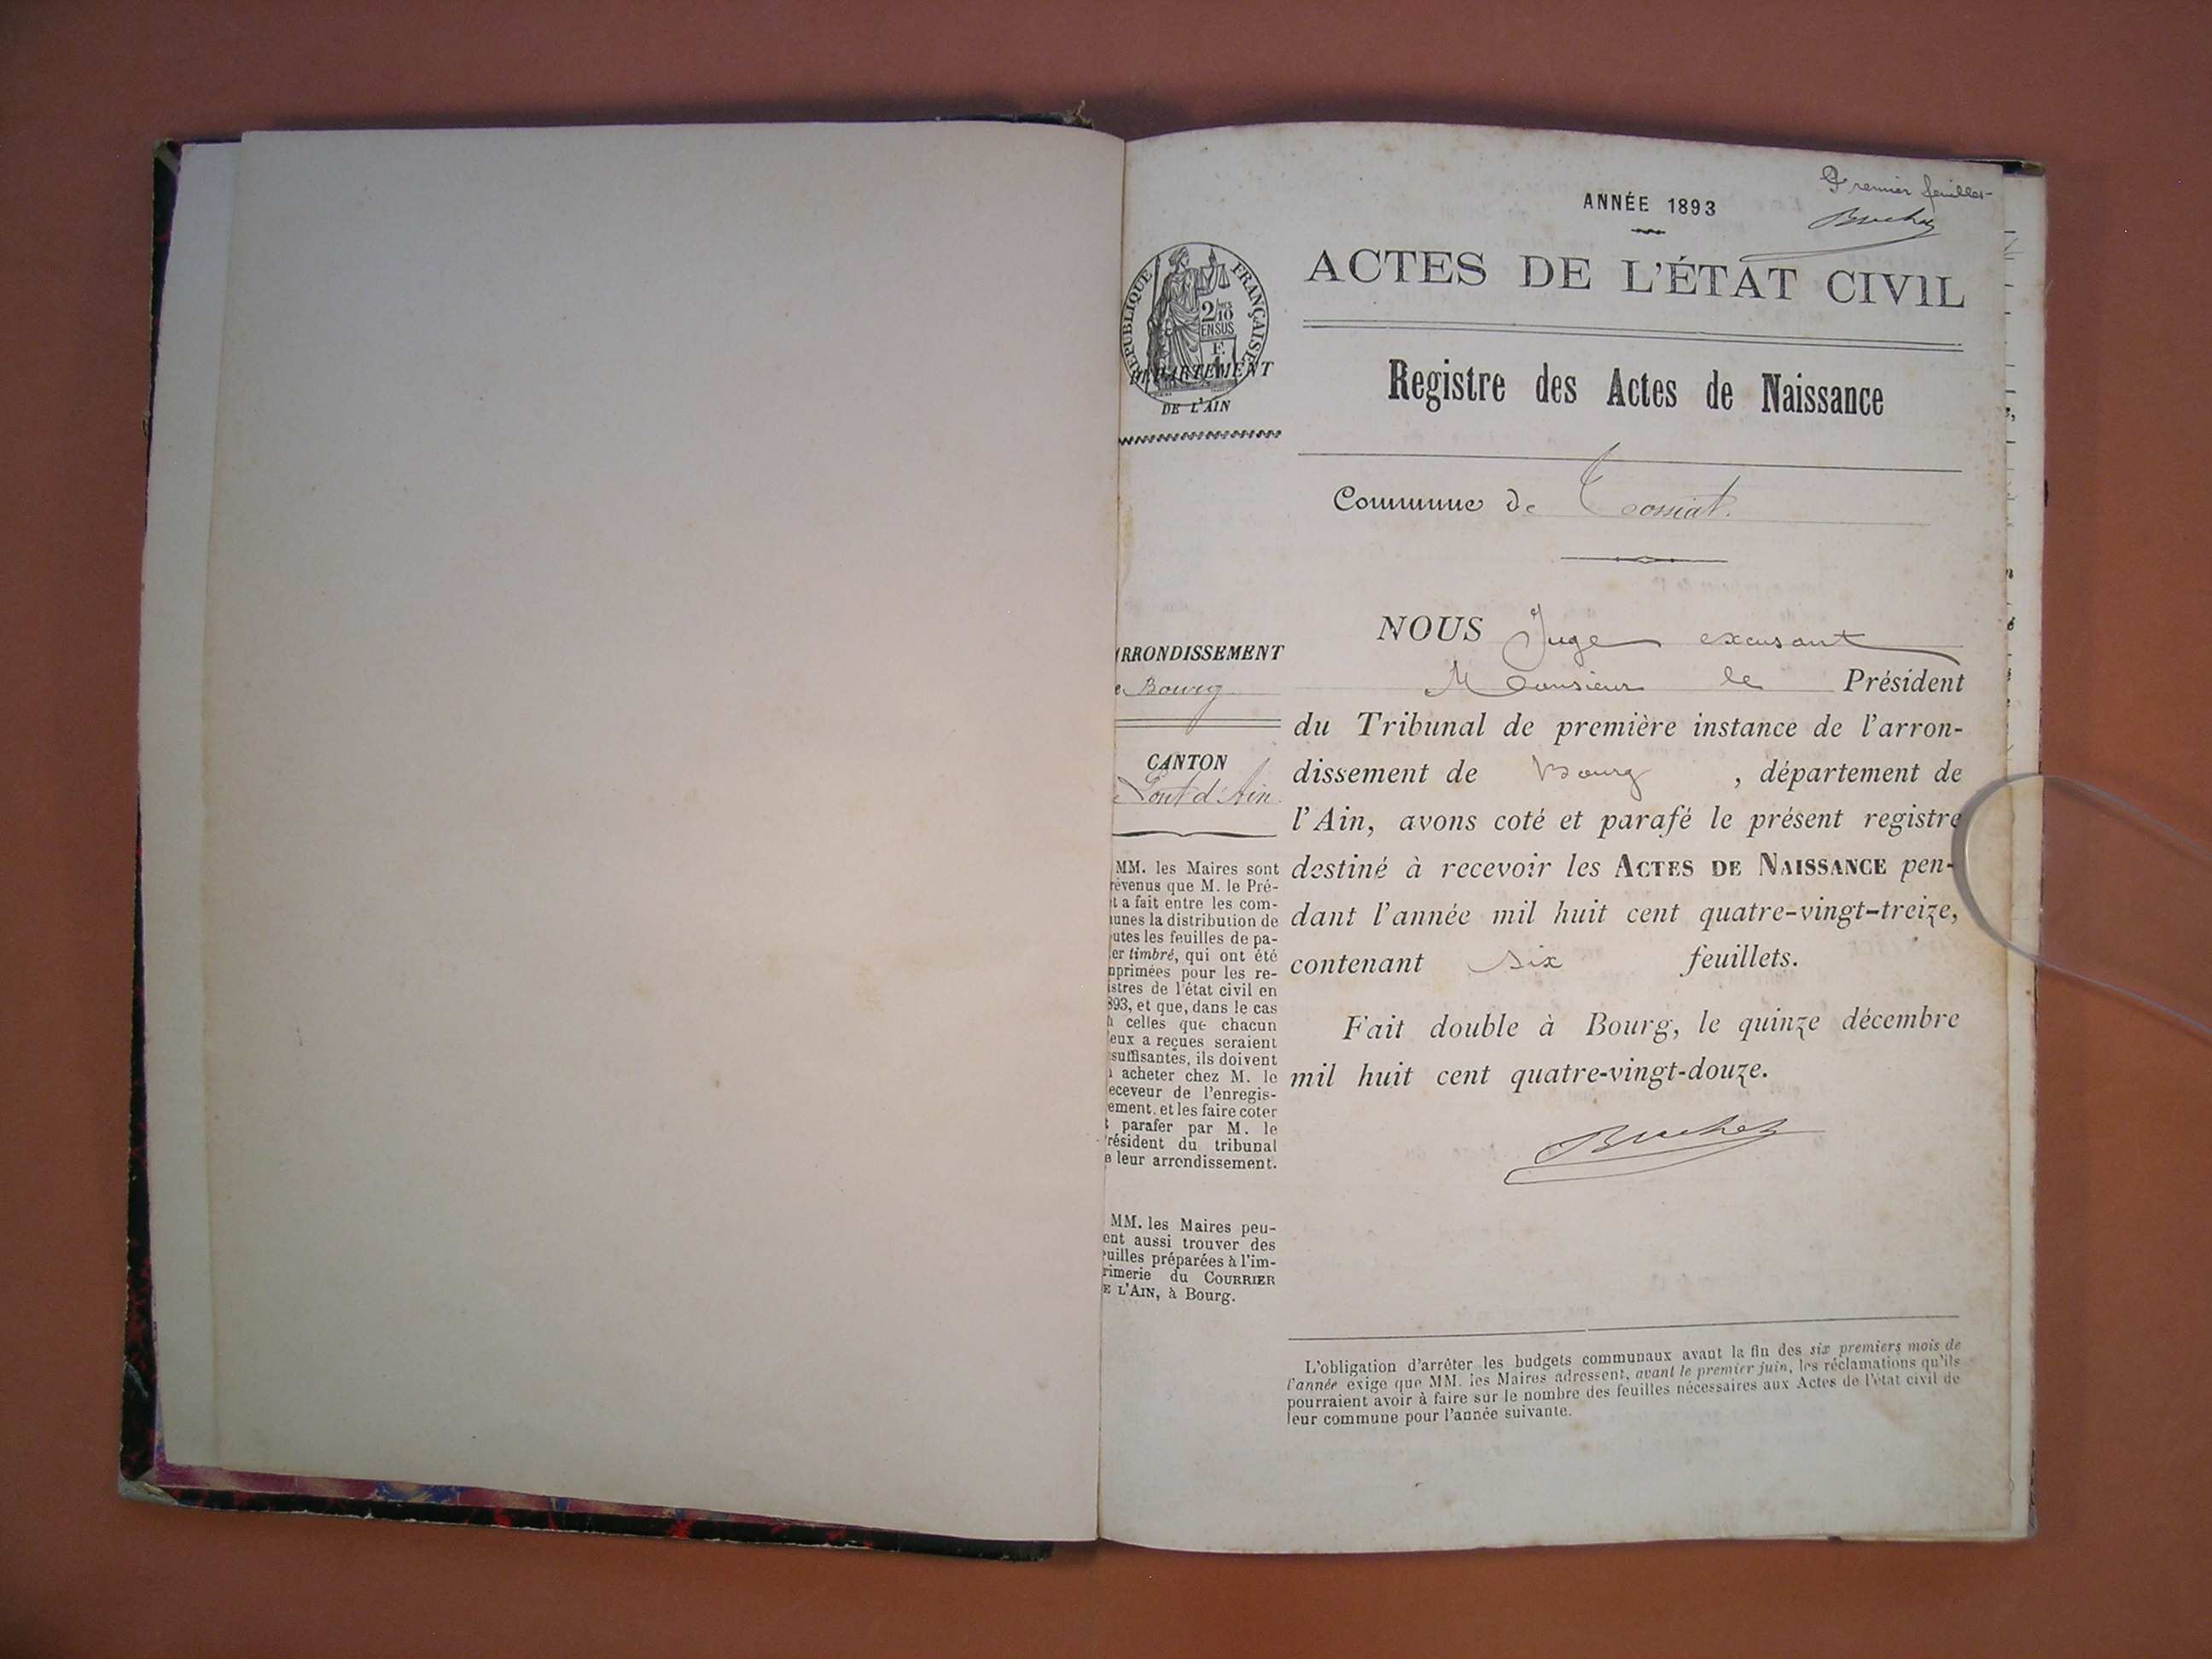 Premier feuillet
ANNÉE 1893
ACTES DE L'ÉTAT CIVIL
RÉPUBLIQUE FRANÇAISE
2/10
EN SUS
DÉPARTEMENT
DE L'AIN
Registre des Actes de Naissance
Commune de Tossiat.
ARRONDISSEMENT
Bourg
CANTON
Pont d'Ain
MM. les Maires sont
révenus que M. le Pré-
t a fait entre les com-
unes la distribution de
utes les feuilles de pa-
er timbré, qui ont été
nprimées pour les re-
istres de l'état civil en
893, et que, dans le cas
ù celles que chacun
'eux a reçues seraient
suffisantes, ils doivent
acheter chez M. le
eceveur de l'enregis-
ement, et les faire coter
t parafer par M. le
résident du tribunal
e leur arrondissement.
MM. les Maires peu-
ent aussi trouver des
uilles préparées à l'im-
rimerie du COURRIER
E L'AIN, à Bourg.
NOUS Juge excusant
Monsieur le Président
du Tribunal de première instance de l'arron-
dissement de Bourg , département de
l'Ain, avons coté et parafé le présent registre
destiné à recevoir les ACTES DE NAISSANCE pen-
dant l'année mil huit cent quatre-vingt-treize,
contenant six feuillets.
Fait double à Bourg, le quinze décembre
mil huit cent quatre-vingt-douze.
L'obligation d'arrêter les budgets communaux avant la fin des six premiers mois de
l'année exige que MM. les Maires adressent, avant le premier juin, les réclamations qu'ils
pourraient avoir à faire sur le nombre des feuilles nécessaires aux Actes de l'état civil de
leur commune pour l'année suivante.